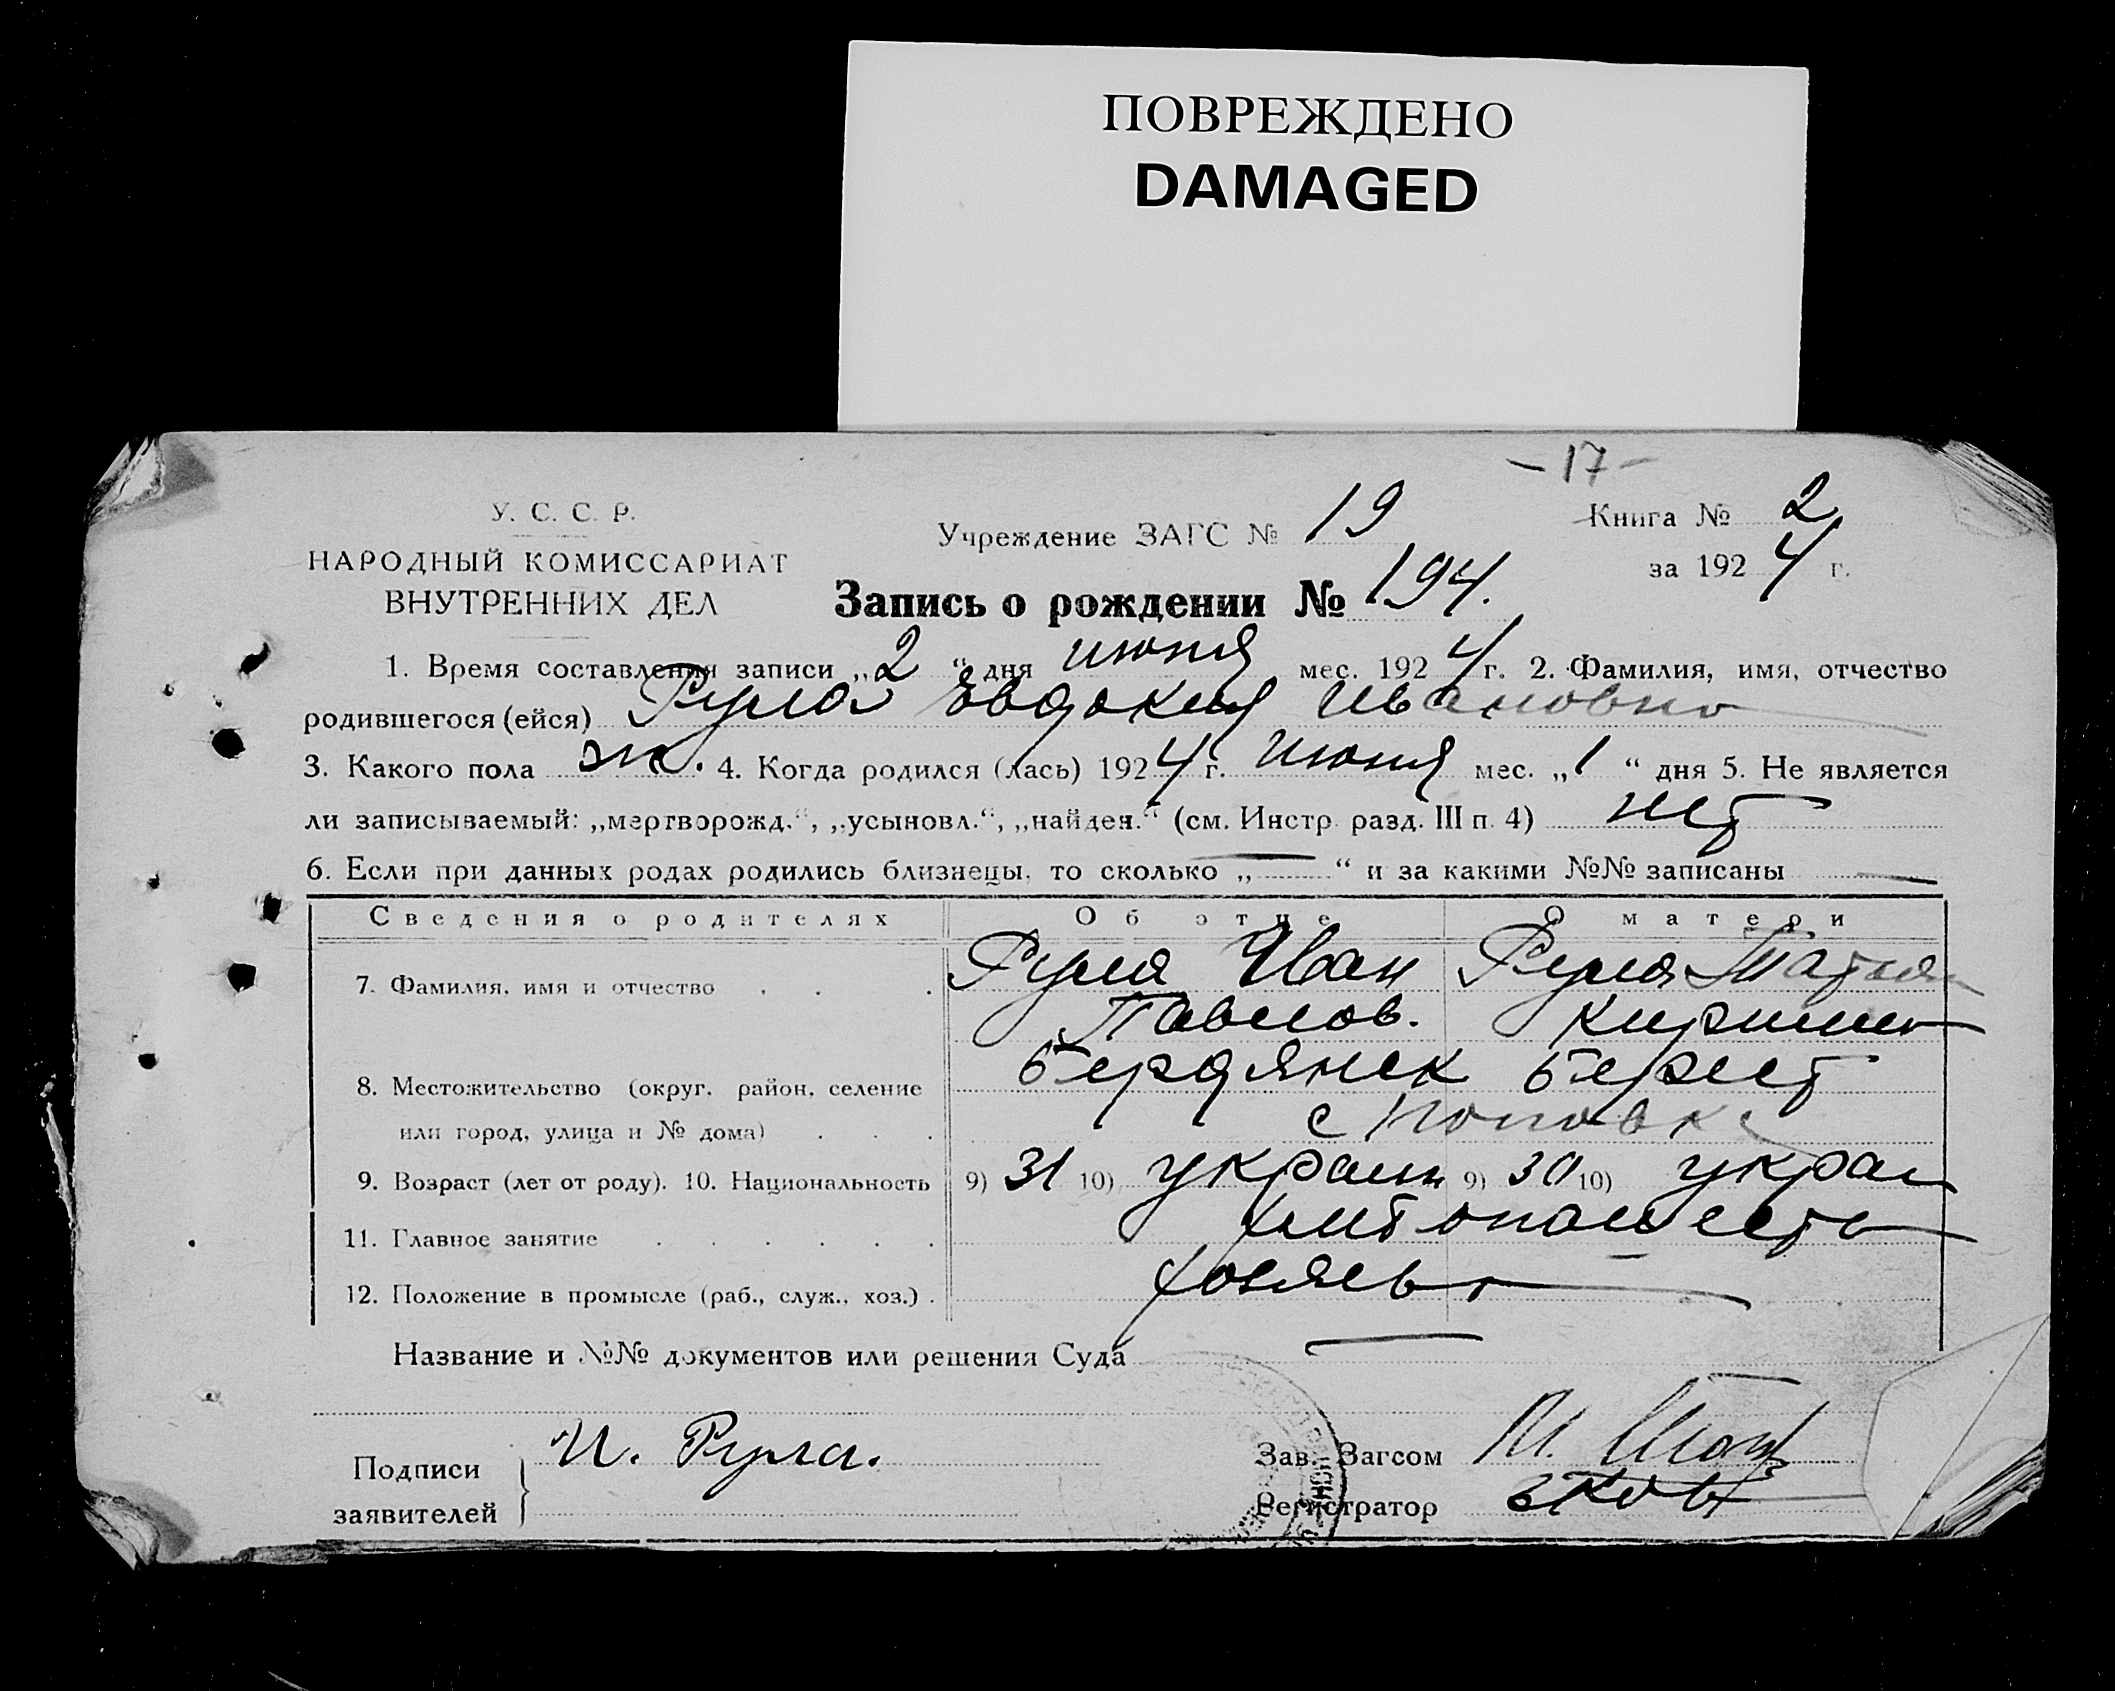 ПОВРЕЖДЕНО
DAMAGED
– 17 –
У. С. С. Р.
НАРОДНЫЙ КОМИССАРИАТ
ВНУТРЕННИХ ДЕЛ
Учреждение ЗАГС № 19
Книга № 2
за 1924 г.
Запись о рождении № 194.
1. Время составления записи „2“ дня июня мес. 1924 г. 2. Фамилия, имя, отчество
родившегося (ейся) Рула Евдокия Ивановна
3. Какого пола ж. 4. Когда родился (лась) 1924 г. июня мес. „1“ дня 5. Не является
ли записываемый: „мертворожд.“, „усыновл.“, „найден.“ (см. Инстр. разд. III п. 4) нет
6. Если при данных родах родились близнецы, то сколько „—“ и за какими №№ записаны —
Сведения о родителях Об отце О матери
7. Фамилия, имя и отчество . . . Рула Иван Рула Татьян
Павлов.
8. Местожительство (округ, район, селение Бердянск Берест
или город, улица и № дома) . . . с Поповка
9. Возраст (лет от роду). 10. Национальность 9) 31 10) украин 9) 30 10) украи
11. Главное занятие . . . . . . хлебопашество
12. Положение в промысле (раб., служ., хоз.) . хозяева
Название и №№ документов или решения Суда —
Подписи
заявителей
И. Рула.
Зав. Загсом
Регистратор